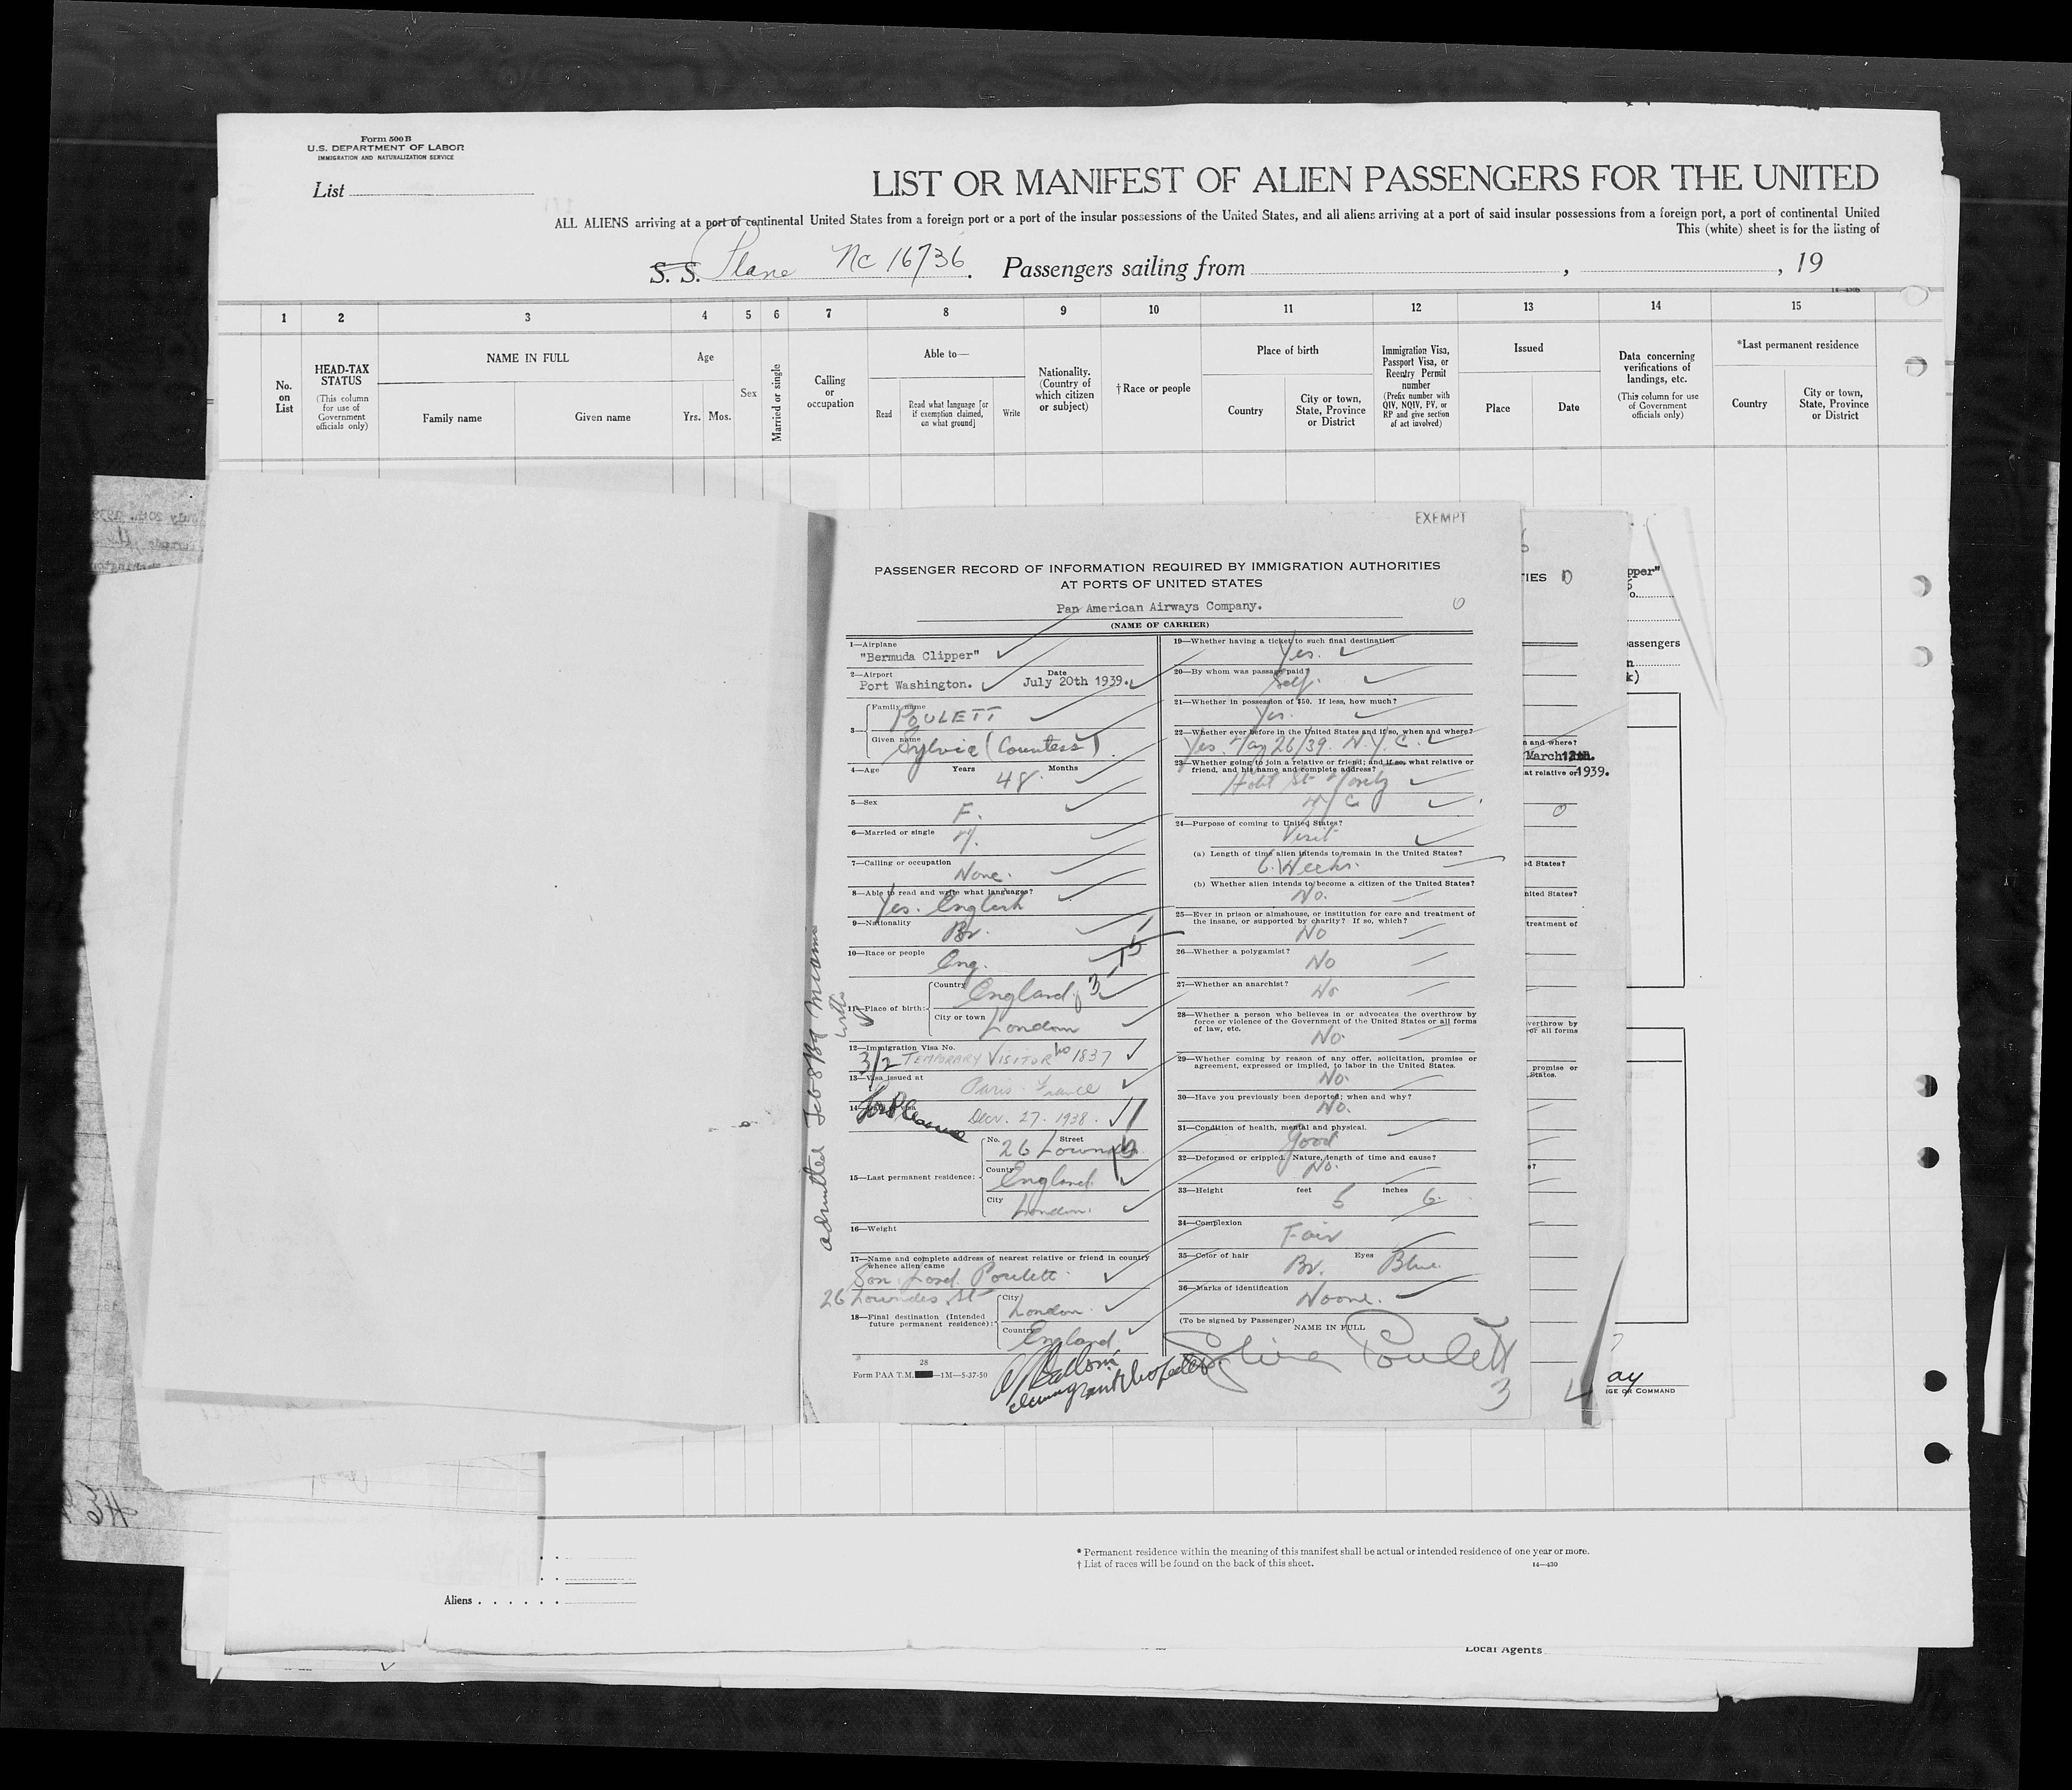 Form 500 B
U.S. DEPARTMENT OF LABOR
IMMIGRATION AND NATURALIZATION SERVICE
List
LIST OR MANIFEST OF ALIEN PASSENGERS FOR THE UNITED
ALL ALIENS arriving at a port of continental United States from a foreign port or a port of the insular possessions of the United States, and all aliens arriving at a port of said insular possessions from a foreign port, a port of continental United
This (white) sheet is for the listing of
S. S. Plane NC 16736. Passengers sailing from , , 19
1 2 3 4 5 6 7 8 9 10 11 12 13 14 15
No. on List
HEAD-TAX STATUS
(This column for use of Government officials only)
NAME IN FULL
Family name
Given name
Age
Yrs. Mos.
Sex
Married or single
Calling or occupation
Able to—
Read
Read what language [or if exemption claimed, on what ground]
Write
Nationality. (Country of which citizen or subject)
† Race or people
Place of birth
Country
City or town, State, Province or District
Immigration Visa, Passport Visa, or Reentry Permit number
(Prefix number with QIV, NQIV, PV, or RP and give section of act involved)
Issued
Place
Date
Data concerning verifications of landings, etc.
(This column for use of Government officials only)
*Last permanent residence
Country
City or town, State, Province or District
EXEMPT
PASSENGER RECORD OF INFORMATION REQUIRED BY IMMIGRATION AUTHORITIES
AT PORTS OF UNITED STATES
Pan American Airways Company.
(NAME OF CARRIER)
1—Airplane
"Bermuda Clipper"
2—Airport Date
Port Washington. July 20th 1939.
3— Family name
POULETT
Given name
Sylvia (Countess)
4—Age Years Months
48.
5—Sex
F.
6—Married or single
M.
7—Calling or occupation
None.
8—Able to read and write what languages?
Yes. English
9—Nationality
Br.
10—Race or people
Eng.
11—Place of birth: Country
England
City or town
London
12—Immigration Visa No.
3/2 TEMPORARY VISITOR No 1837
13—Visa issued at
Paris. France
Decr. 27. 1938.
15—Last permanent residence: No. Street
26 Lowndes
County
England.
City
London.
16—Weight
17—Name and complete address of nearest relative or friend in country whence alien came
Son. Lord. Poulett.
26 Lowndes St
18—Final destination (Intended future permanent residence): City
London.
Country
England.
28
Form PAA T.M. —1M—5-37-50
19—Whether having a ticket to such final destination
Yes.
20—By whom was passage paid?
Self.
21—Whether in possession of $50. If less, how much?
Yes.
22—Whether ever before in the United States and if so, when and where?
Yes. May 26/39. N.Y.C.
23—Whether going to join a relative or friend; and if so, what relative or friend, and his name and complete address?
Hotel St Moritz
NYC
24—Purpose of coming to United States?
Visit
(a) Length of time alien intends to remain in the United States?
6. Weeks.
(b) Whether alien intends to become a citizen of the United States?
No.
25—Ever in prison or almshouse, or institution for care and treatment of the insane, or supported by charity? If so, which?
No
26—Whether a polygamist?
No
27—Whether an anarchist?
No
28—Whether a person who believes in or advocates the overthrow by force or violence of the Government of the United States or all forms of law, etc.
No.
29—Whether coming by reason of any offer, solicitation, promise or agreement, expressed or implied, to labor in the United States.
No.
30—Have you previously been deported; when and why?
No.
31—Condition of health, mental and physical.
Good
32—Deformed or crippled. Nature, length of time and cause?
No.
33—Height feet inches
5 6.
34—Complexion
Fair
35—Color of hair Eyes
Br. Blue.
36—Marks of identification
Noone.
(To be signed by Passenger)
NAME IN FULL
Sylvia Poulett
3
4
* Permanent residence within the meaning of this manifest shall be actual or intended residence of one year or more.
† List of races will be found on the back of this sheet.
14—430
Aliens
Local Agents